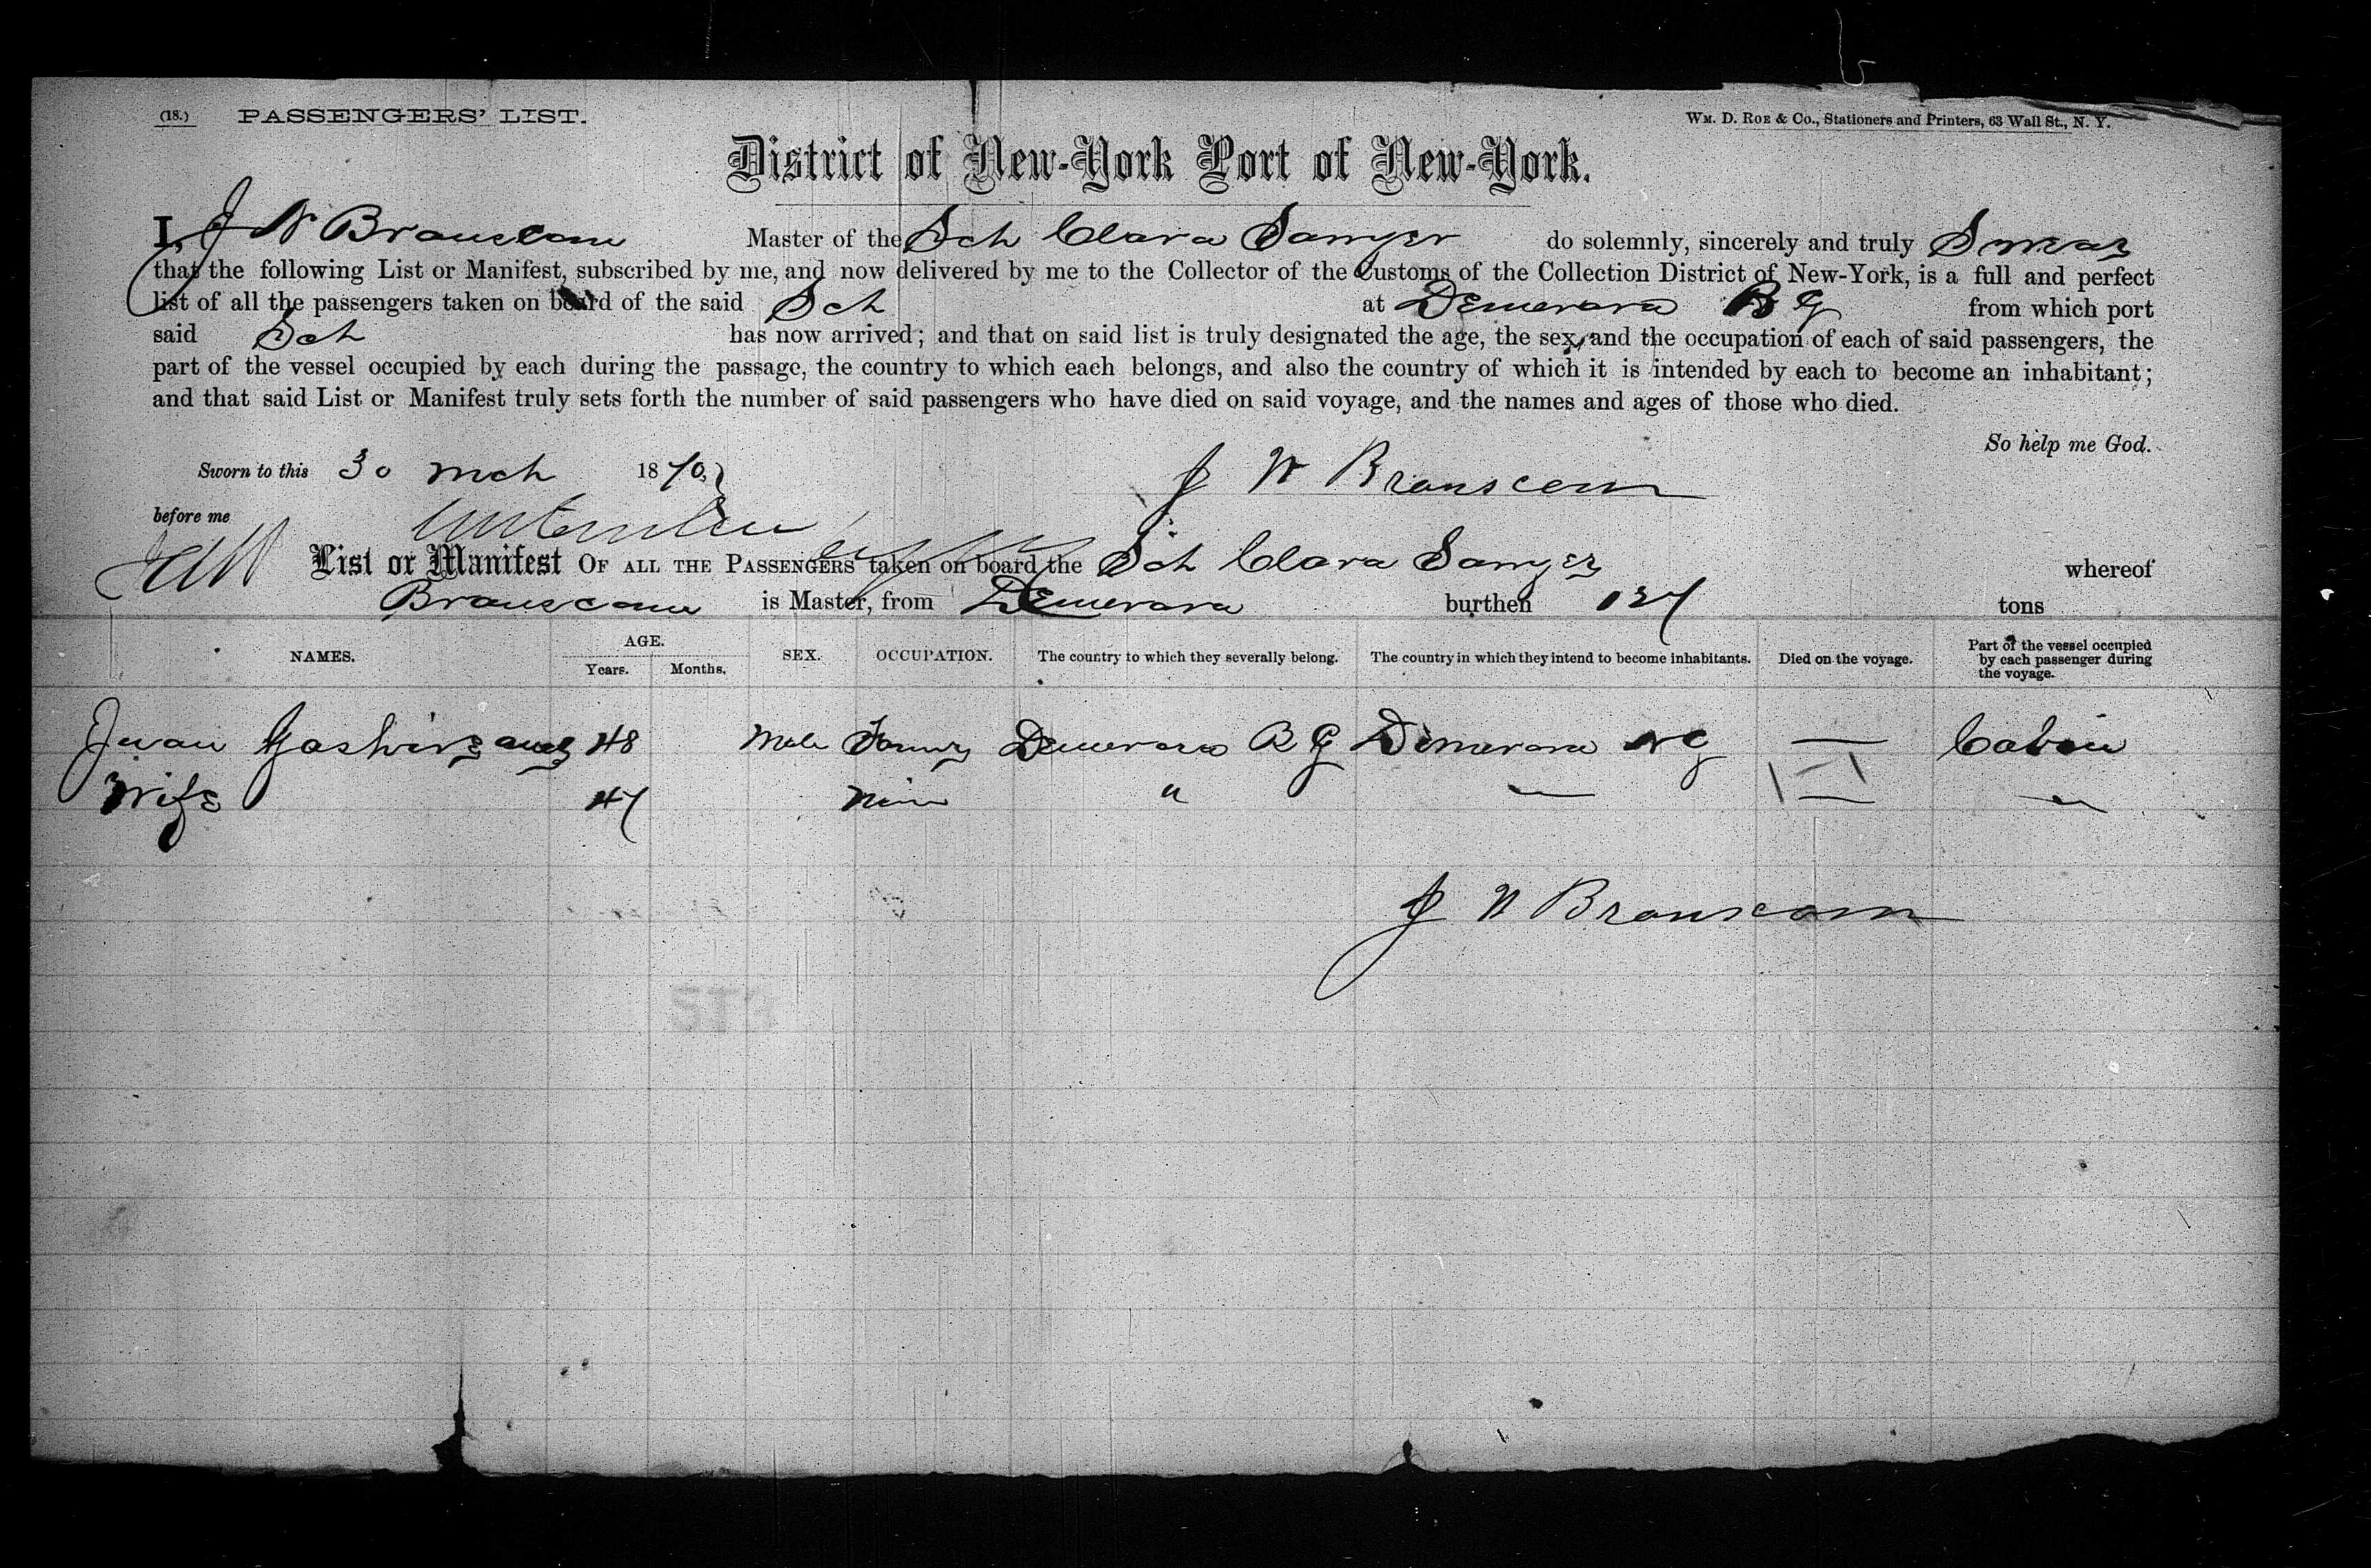 (18.) PASSENGERS' LIST.
WM. D. ROE & CO., Stationers and Printers, 63 Wall St., N. Y.
District of New-York Port of New-York.
I, J W Branscom Master of the Sch Clara Sawyer do solemnly, sincerely and truly Swear
that the following List or Manifest, subscribed by me, and now delivered by me to the Collector of the Customs of the Collection District of New-York, is a full and perfect
list of all the passengers taken on board of the said Sch at Demerara B G from which port
said Sch has now arrived; and that on said list is truly designated the age, the sex, and the occupation of each of said passengers, the
part of the vessel occupied by each during the passage, the country to which each belongs, and also the country of which it is intended by each to become an inhabitant;
and that said List or Manifest truly sets forth the number of said passengers who have died on said voyage, and the names and ages of those who died.
So help me God.
Sworn to this 30 Mch 1870 J W Branscom
before me
List or Manifest OF ALL THE PASSENGERS taken on board the Sch Clara Sawyer whereof
Branscom is Master, from Demerara burthen 137 tons
NAMES. AGE. Years. Months. SEX. OCCUPATION. The country to which they severally belong. The country in which they intend to become inhabitants. Died on the voyage. Part of the vessel occupied by each passenger during the voyage.
Juan and 48 Male Demerara B G Demerara — Cabin
Wife 47 " — —
J W Branscom